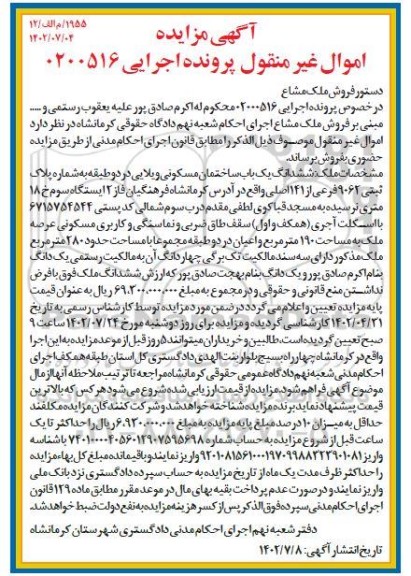 ۱۹۵۵/م الف/۱۲
۱۴۰۲/۰۷/۰۴
آگهی مزایده
اموال غیر منقول پرونده اجرایی ۰۲۰۰۵۱۶
دستور فروش ملک مشاع
در خصوص پرونده اجرایی ۰۲۰۰۰۵۱۶ محکوم له اکرم صادق پور علیه یعقوب رستمی و .....
مبنی بر فروش ملک مشاع اجرای احکام شعبه نهم دادگاه حقوقی کرمانشاه در نظر دارد
اموال غیر منقول موصوف ذیل الذکر را مطابق قانون اجرای احکام مدنی از طریق مزایده
حضوری بفروش برساند.
مشخصات ملک: ششدانگ یک باب ساختمان مسکونی ویلایی در دو طبقه به شماره پلاک
ثبتی ۹۰۶۲ فرعی از ۱۴۱ اصلی واقع در آدرس کرمانشاه فرهنگیان فاز ۲ ایستگاه سوم خ ۱۸
متری نرسیده به مسجد قبا کوی لطفی مقدم درب سوم شمالی کد پستی ۶۷۱۵۷۵۴۵۴۴
با اسکلت آجری (همکف و اول) سقف طاق ضربی و نماسنگی و کاربری مسکونی عرصه
ملک به مساحت ۱۹۰ متر مربع و اعیان در دو طبقه مجموعا با مساحت حدود ۲۸۰ متر مربع
ملک مذکور دارای سه سند مالکیت تک برگی چهار دانگ آن به مالکیت رستمی یک دانگ
بنام اکرم صادق پور و یک دانگ بنام بهجت صادق پور که ارزش ششدانگ ملک فوق با فرض
نداشتن منع قانونی و حقوقی و در مجموع به مبلغ ۶۹،۲۰۰،۰۰۰،۰۰۰ ریال به عنوان قیمت
پایه مزایده تعیین و اعلام می گردد در ضمن مورد مزایده توسط کارشناس رسمی به تاریخ
۱۴۰۲/۰۴/۲۱ کارشناسی گردیده و مزایده برای روز دوشنبه مورخ ۱۴۰۲/۰۷/۲۴ ساعت ۹
صبح تعیین گردیده است، طالبین و خریداران میتوانند ۵ روز قبل از موعد مزایده به این اجرا
واقع در کرمانشاه چهار راه بسیج بلوار بنت الهدی دادگستری کل استان طبقه همکف اجرای
احکام مدنی شعبه نهم دادگاه عمومی حقوقی کرمانشاه مراجعه تا ترتیب ملاحظه آنها از مال
موضوع آگهی فراهم شود. مزایده از قیمت ارزیابی شده شروع می شود هر کس که بالاترین
قیمت پیشنهاد نماید برنده مزایده شناخته خواهد شد و شرکت کنندگان مزایده مکلفند
حداقل به میزان ۱۰ درصد مبلغ پایه مزایده به مبلغ ۶،۹۲۰،۰۰۰،۰۰۰ ریال را حداکثر تا یک
ساعت قبل از شروع مزایده به حساب شماره
واریز نمایند و باقیمانده مبلغ کل بهاء مزایده
را حداکثر ظرف مدت یک ماه از تاریخ مزایده به حساب سپرده دادگستری نزد بانک ملی
واریز نمایند و در صورت عدم پرداخت بقیه بهای مال در موعد مقرر مطابق ماده ۱۲۹ قانون
اجرای احکام مدنی سپرده فوق الذکر پس از کسر هزینه مزایده به نفع دولت ضبط خواهد شد.
دفتر شعبه نهم اجرای احکام مدنی دادگستری شهرستان کرمانشاه
تاریخ انتشار آگهی: ۱۴۰۲/۷/۸